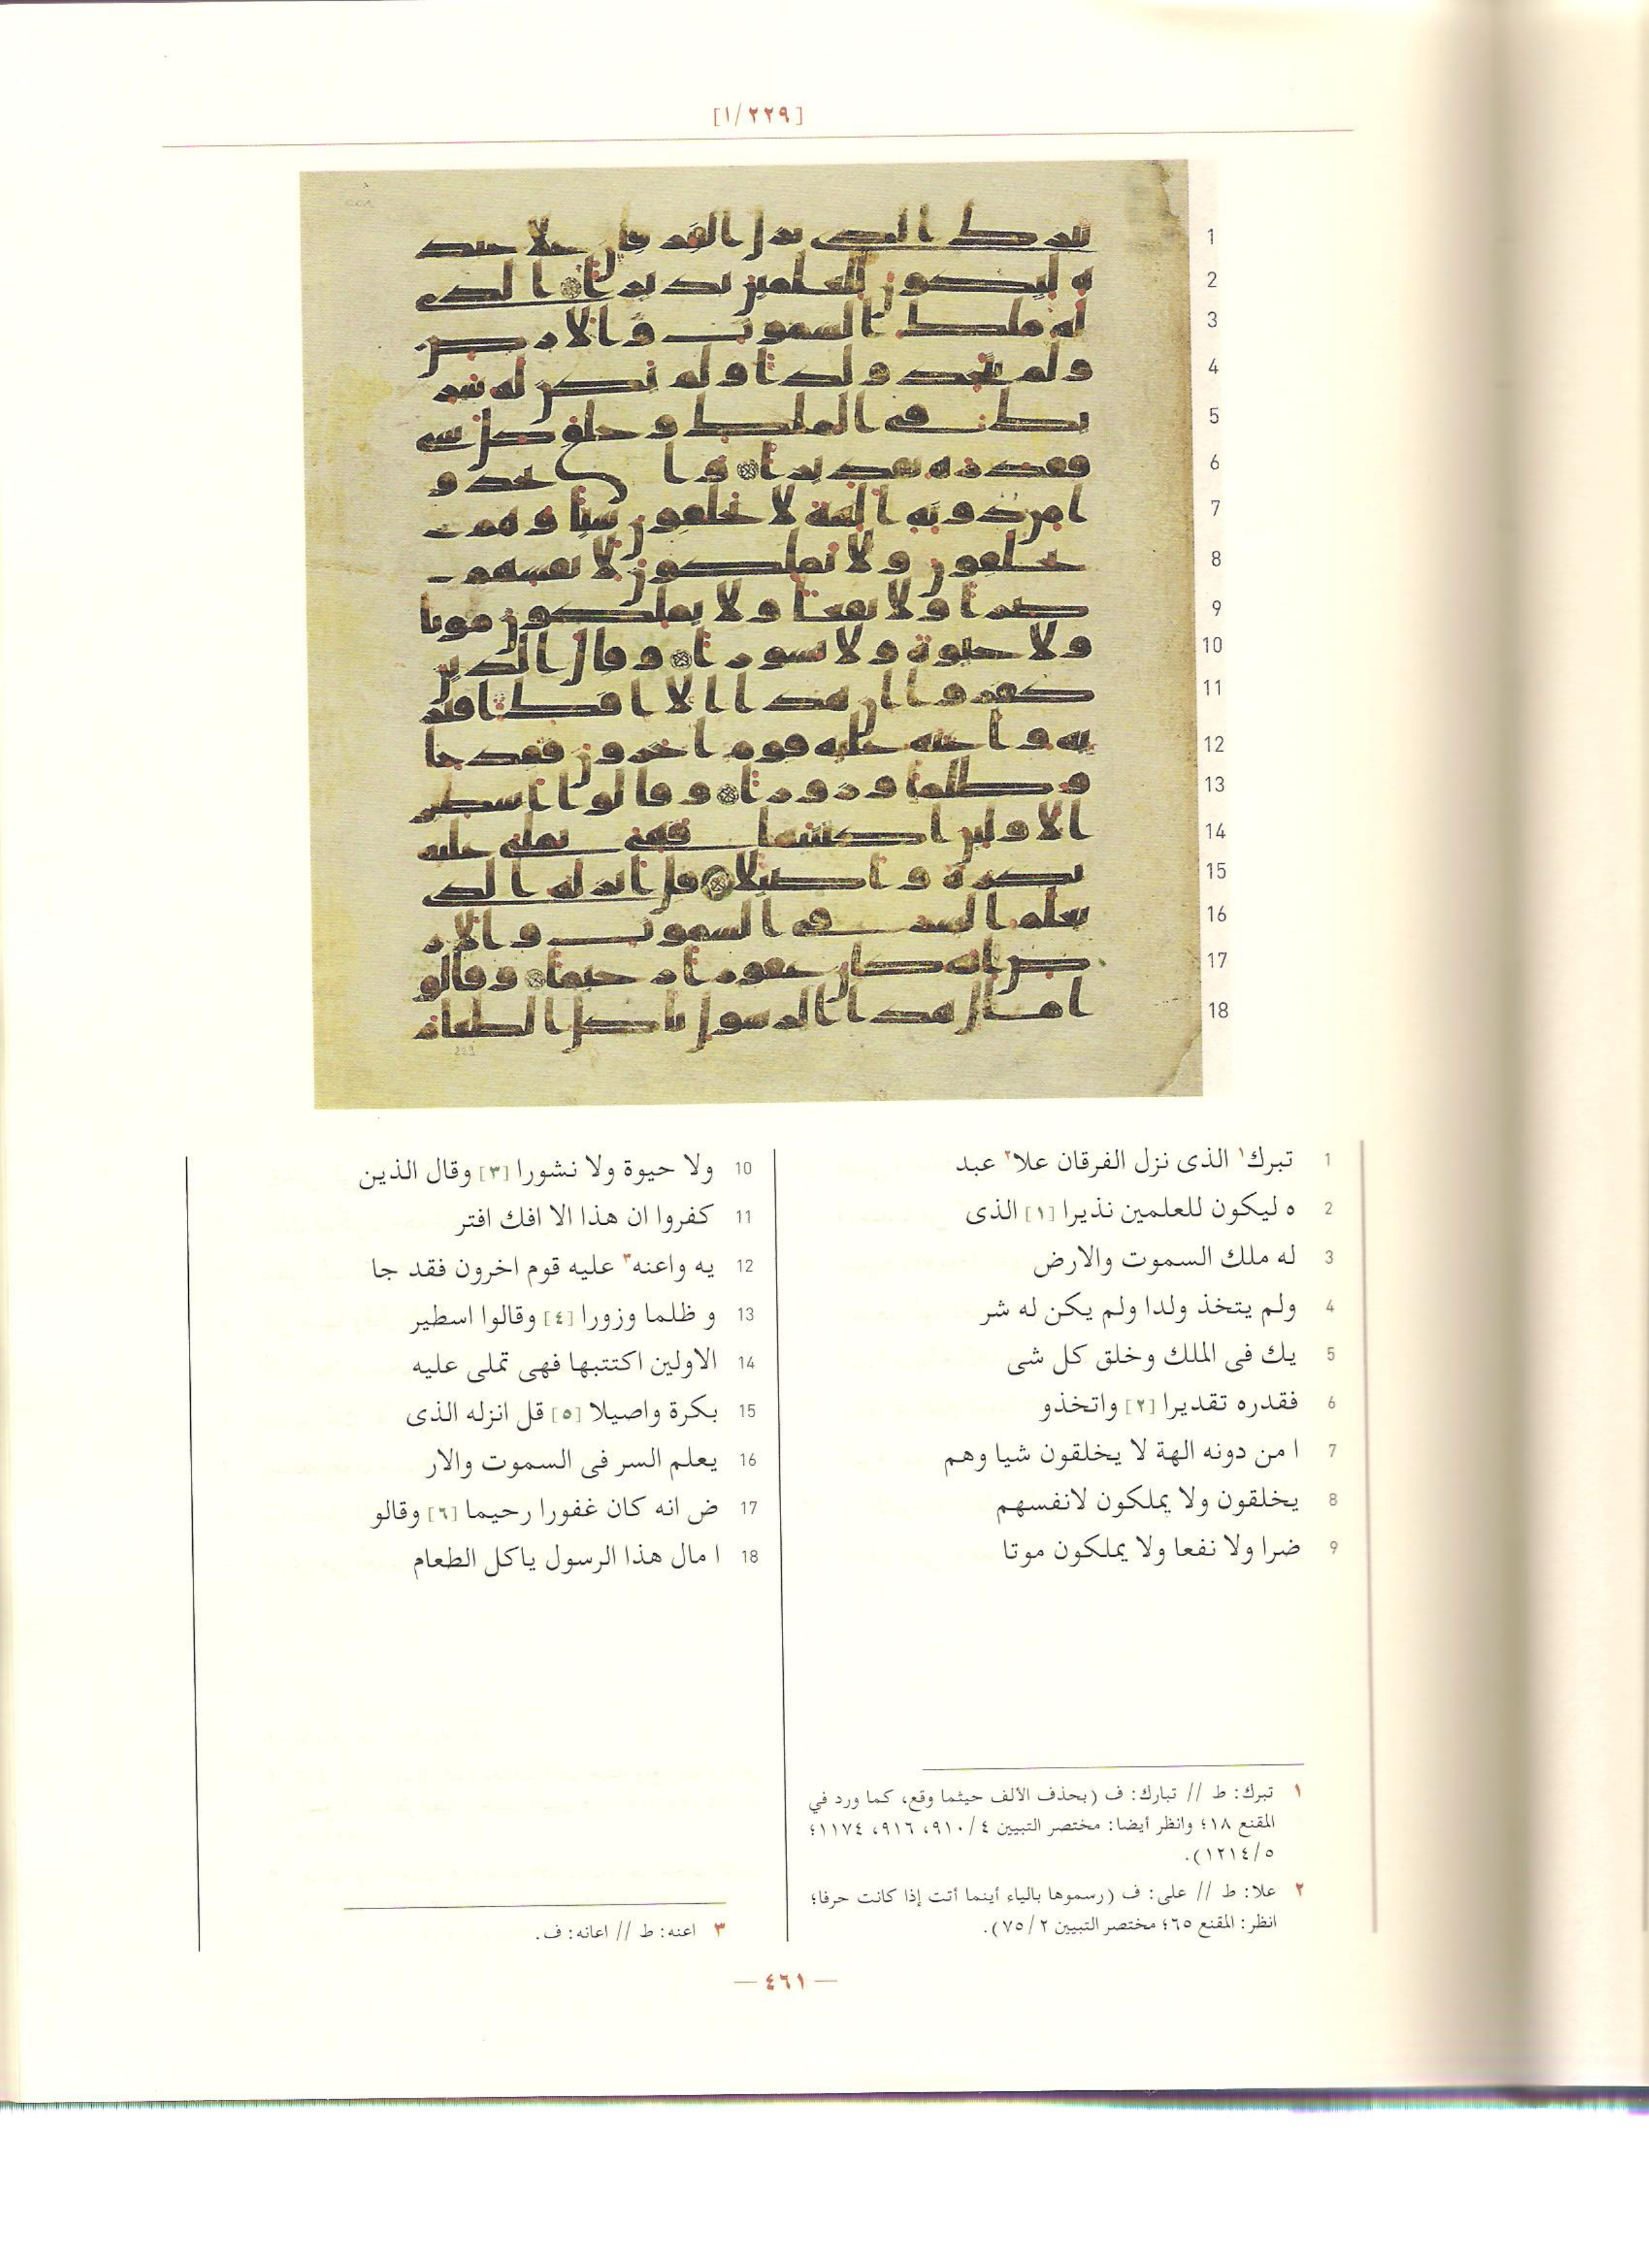 [١/٢٢٩]
1 تبرك١ الذى نزل الفرقان علا٢ عبد
2 ه ليكون للعلمين نذيرا [١] الذى
3 له ملك السموت والارض
4 ولم يتخذ ولدا ولم يكن له شر
5 يك فى الملك وخلق كل شى
6 فقدره تقديرا [٢] واتخذو
7 ا من دونه الهة لا يخلقون شيا وهم
8 يخلقون ولا يملكون لانفسهم
9 ضرا ولا نفعا ولا يملكون موتا
10 ولا حيوة ولا نشورا [٣] وقال الذين
11 كفروا ان هذا الا افك افتر
12 يه واعنه٣ عليه قوم اخرون فقد جا
13 و ظلما وزورا [٤] وقالوا اسطير
14 الاولين اكتتبها فهى تملى عليه
15 بكرة واصيلا [٥] قل انزله الذى
16 يعلم السر فى السموت والار
17 ض انه كان غفورا رحيما [٦] وقالو
18 ا مال هذا الرسول ياكل الطعام
١ تبرك: ط // تبارك: ف (بحذف الألف حيثما وقع، كما ورد في
المقنع ١٨؛ وانظر أيضا: مختصر التبيين ٤/ ٩١٠، ٩١٦، ١١٧٤؛
٥/ ١٢١٤).
٢ علا: ط // على: ف (رسموها بالياء أينما أتت إذا كانت حرفا؛
انظر: المقنع ٦٥؛ مختصر التبيين ٢/ ٧٥).
٣ اعنه: ط // اعانه: ف.
— ٤٦١ —